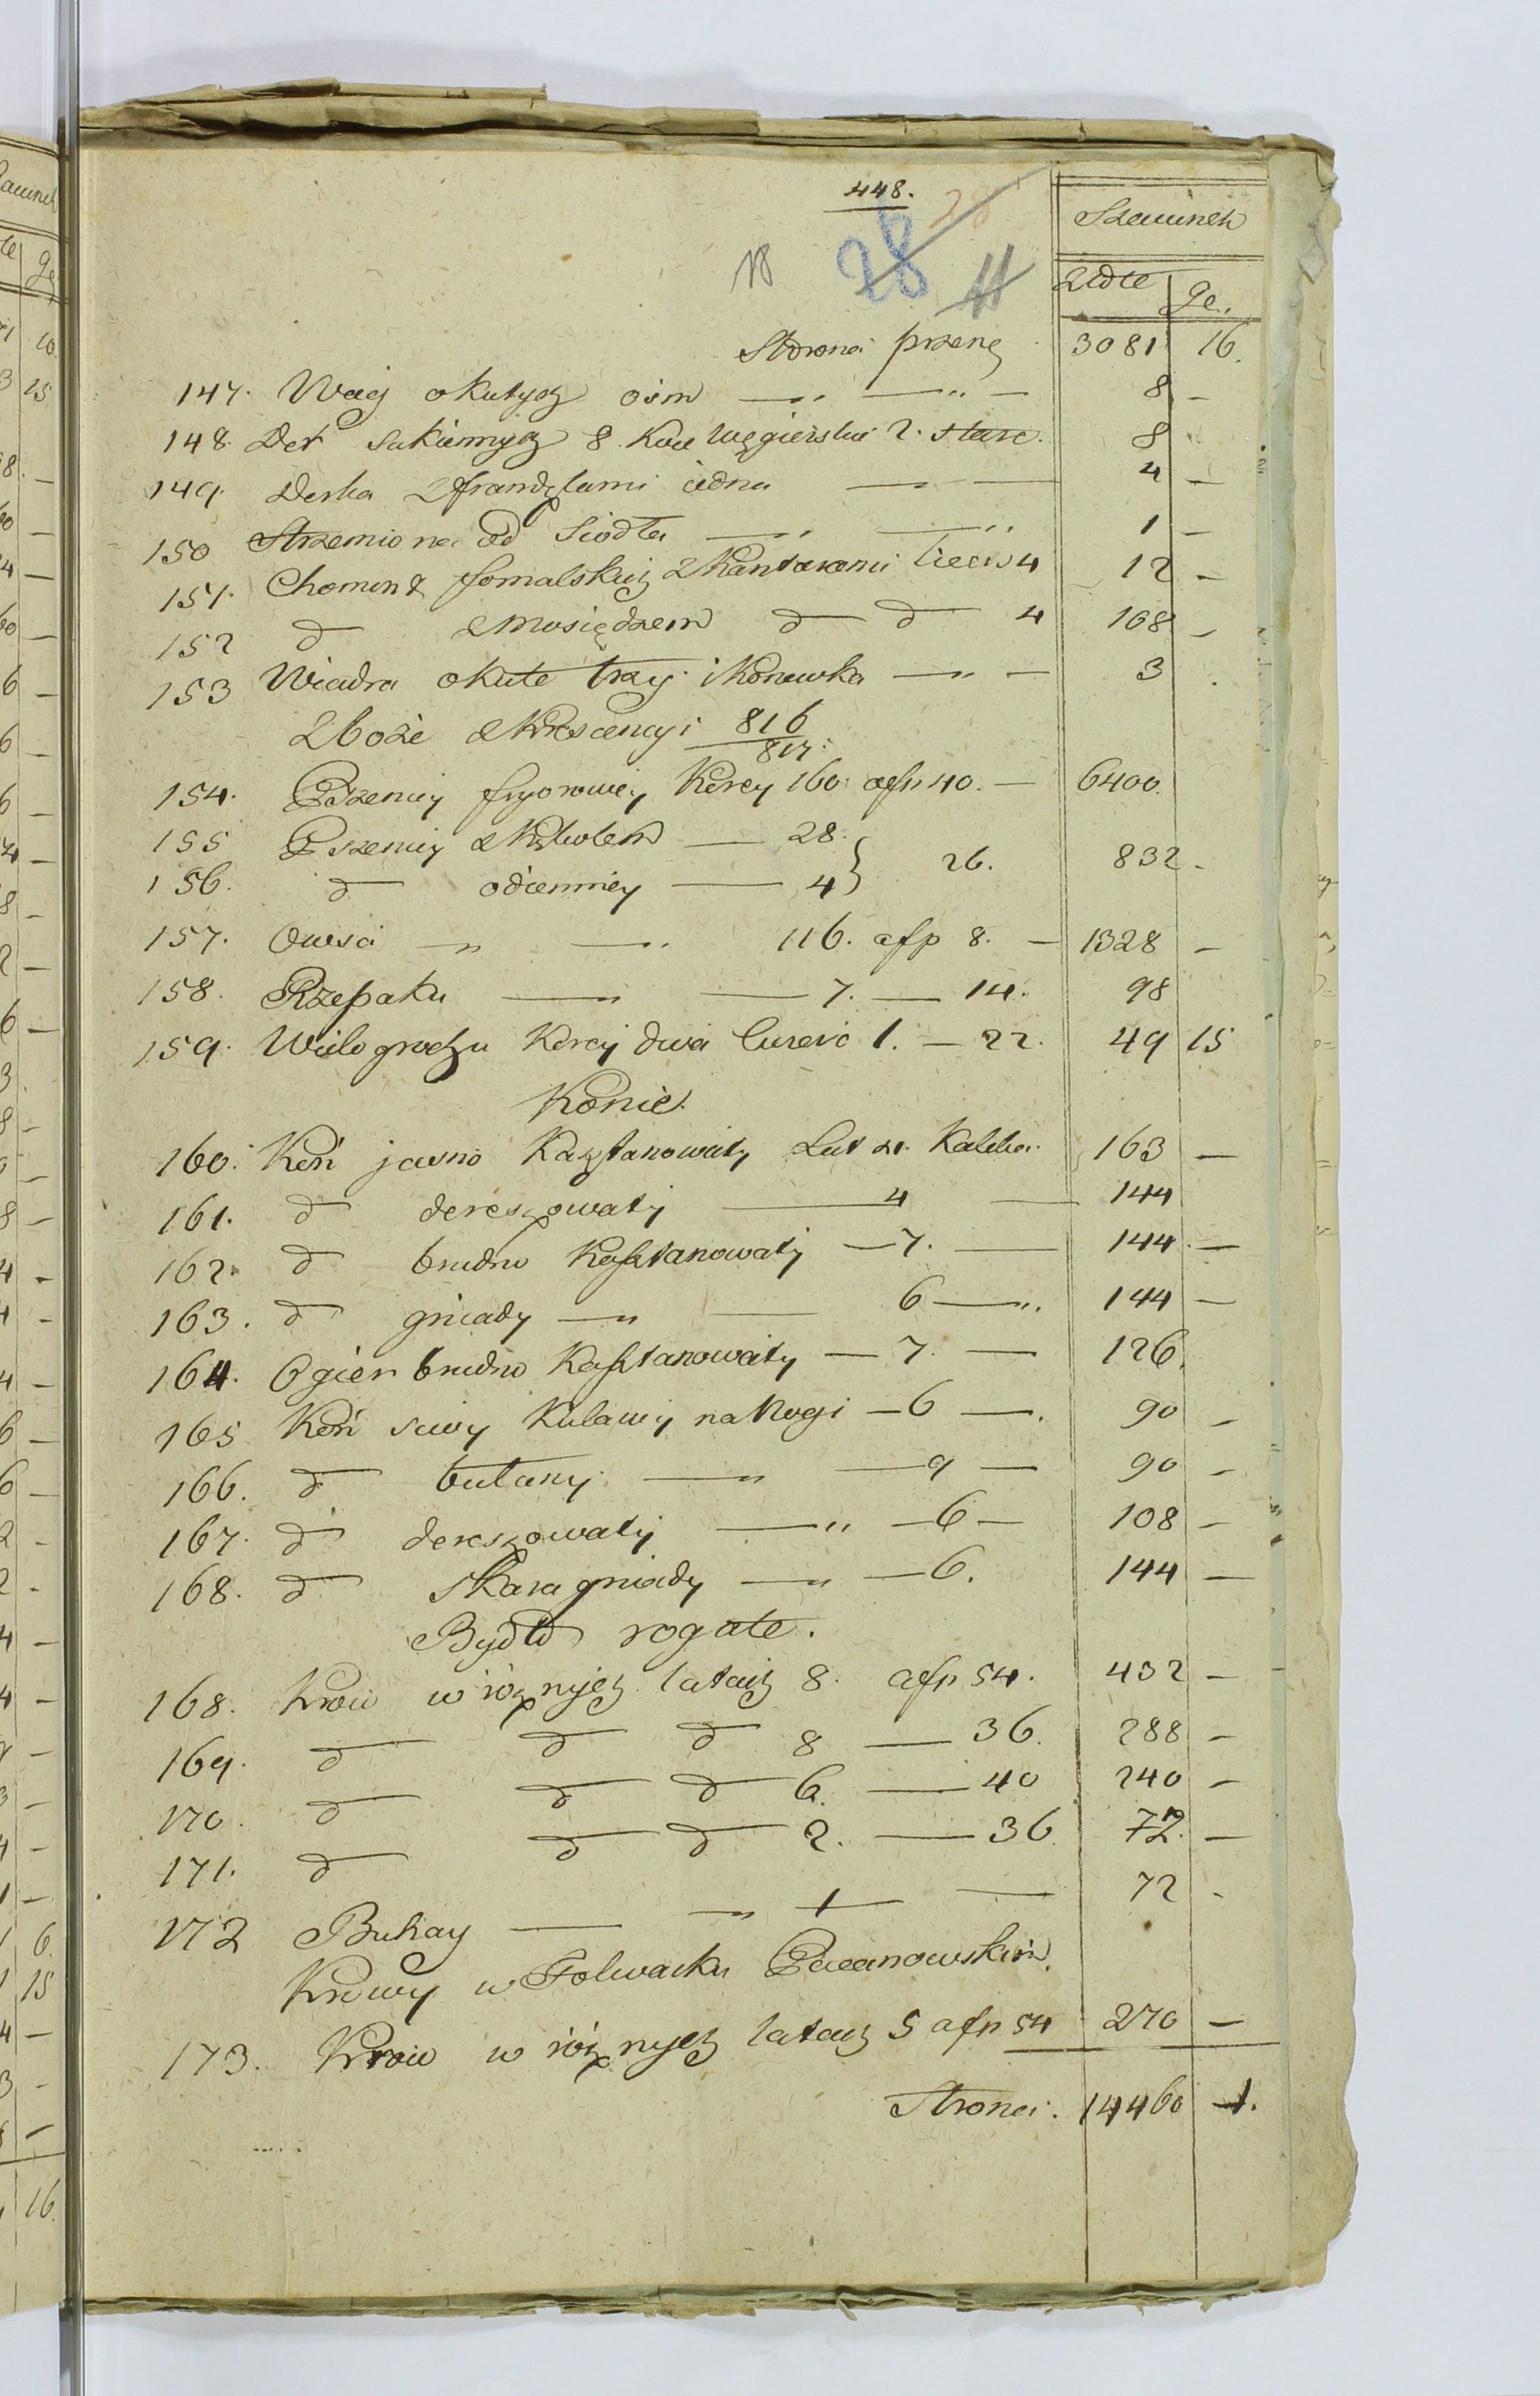 448.
28
28
18
11
Szacunek
Złote gr.
Strona przenę 3081 16.
147. Wag okutych ośm — „ — „ — 8 —
148. Der sukiennych 8. Koce węgierskie 2. stare. 8
149. Derka z frandzlami iedna — — 4 —
150 Strzemiona od Siodła — „ — „ 1 —
151. Chomont fornalskich z Kantarami lićców 4 12 —
152 d mosiędzem d d 4 108 —
153 Wiadra okute trzy i Konewka — „ — 3 .
Zboże z Krescencyi 816/817.
154. Pszenicy fryorowey Korcy 160. a fp 40. — 6400.
155 Pszenicy z Kąkolem — 28.
156. d odzienney — 4 } 26. 832 —
157. Owsa — „ — „ 116. a fp 8. — 1328 —
158. Rzepaku — „ — 7. — 14. 98
159. Wielogrochu Korcy dwa ćwierć 1. — 22. 49 15
Konie.
160. Koń jasno Kasztanowaty Lat 21. Kaleka. 163 —
161. d dereszowaty — 4 — 144
162. d brudno Kasztanowaty — 7. — 144. —
163. d gniady — „ — 6 — „. 144 —
164. Ogier brudno Kasztanowaty — 7. — 126.
165 Koń siwy Kulawy na Nogi — 6 —. 90 —
166. d bułany — „ — 9 — 90 —
167. d dereszowaty — „ — 6 — 108 —
168. d skarogniady — „ — 6. 144 —
Bydło rogate.
168. Krów w różnych latach 8. a fp 54. 432 —
169. d d d 8 — 36. 288 —
170. d d d 6. — 40 240 —
171. d d d 2. — 36. 72. —
172 Buhay — „ 1 — — 72 —
Krowy w Folwarku Pacanowskim.
173. Krów w różnych latach 5 a fp 54 270 —
Strona. 14460 1.